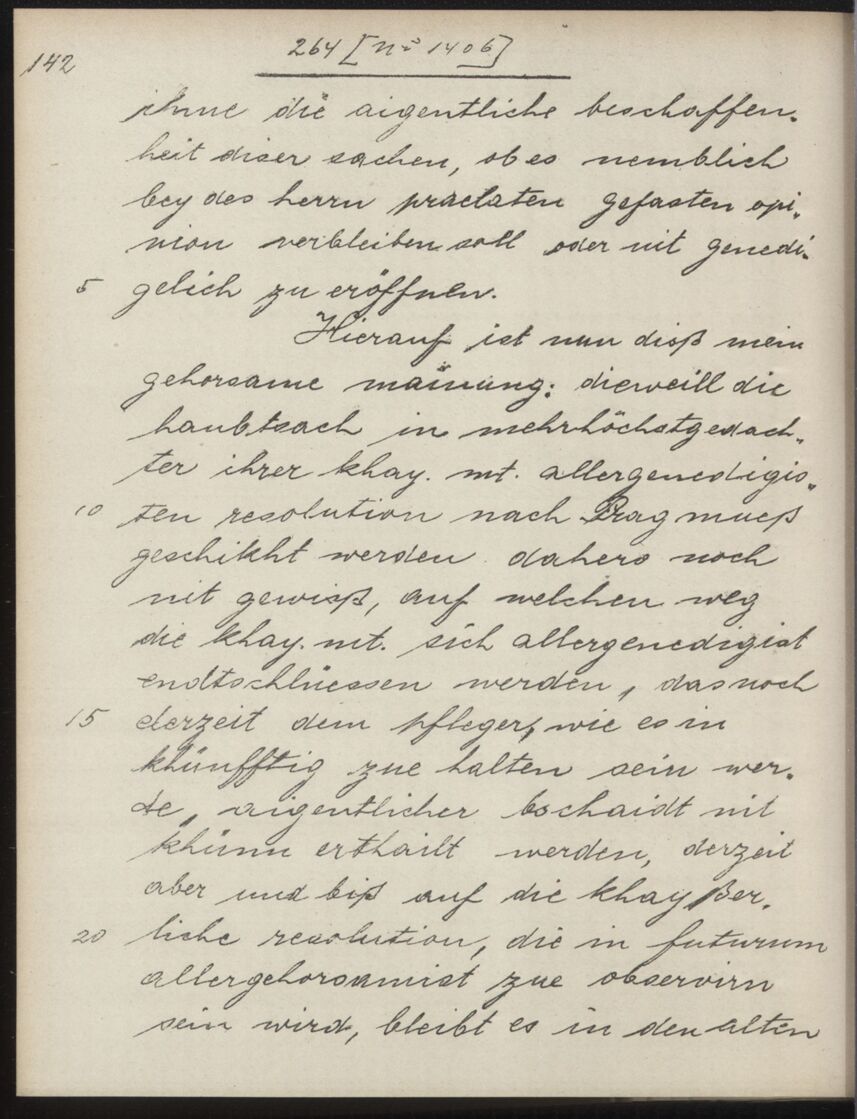 142
264 [Nº 1406]
ihme die aigentliche beschaffen-
heit diser sachen, ob es nemblich
bey des herrn praelaten gefasten opi-
nion verbleiben soll oder nit genedi-
5 gelich zu eröffnen.
Hierauf ist nun disß mein
gehorsame mainung: dieweill die
haubtsach in mehrhöchstgedach-
ter ihrer khay. mt. allergenedigis-
10 ten resolution nach Prag mueß
geschikht werden dahero noch
nit gewisß, auf welchen weg
die khay. mt. sich allergenedigist
endtschliessen werden, das noch
15 derzeit dem pfleger, wie es in
khünfftig zue halten sein wer-
de, aigentlicher bschaidt nit
khünn erthailt werden, derzeit
aber und biß auf die khayßer-
20 liche resolution, die in futurum
allergehorsamist zue observirn
sein wird, bleibt es in den alten